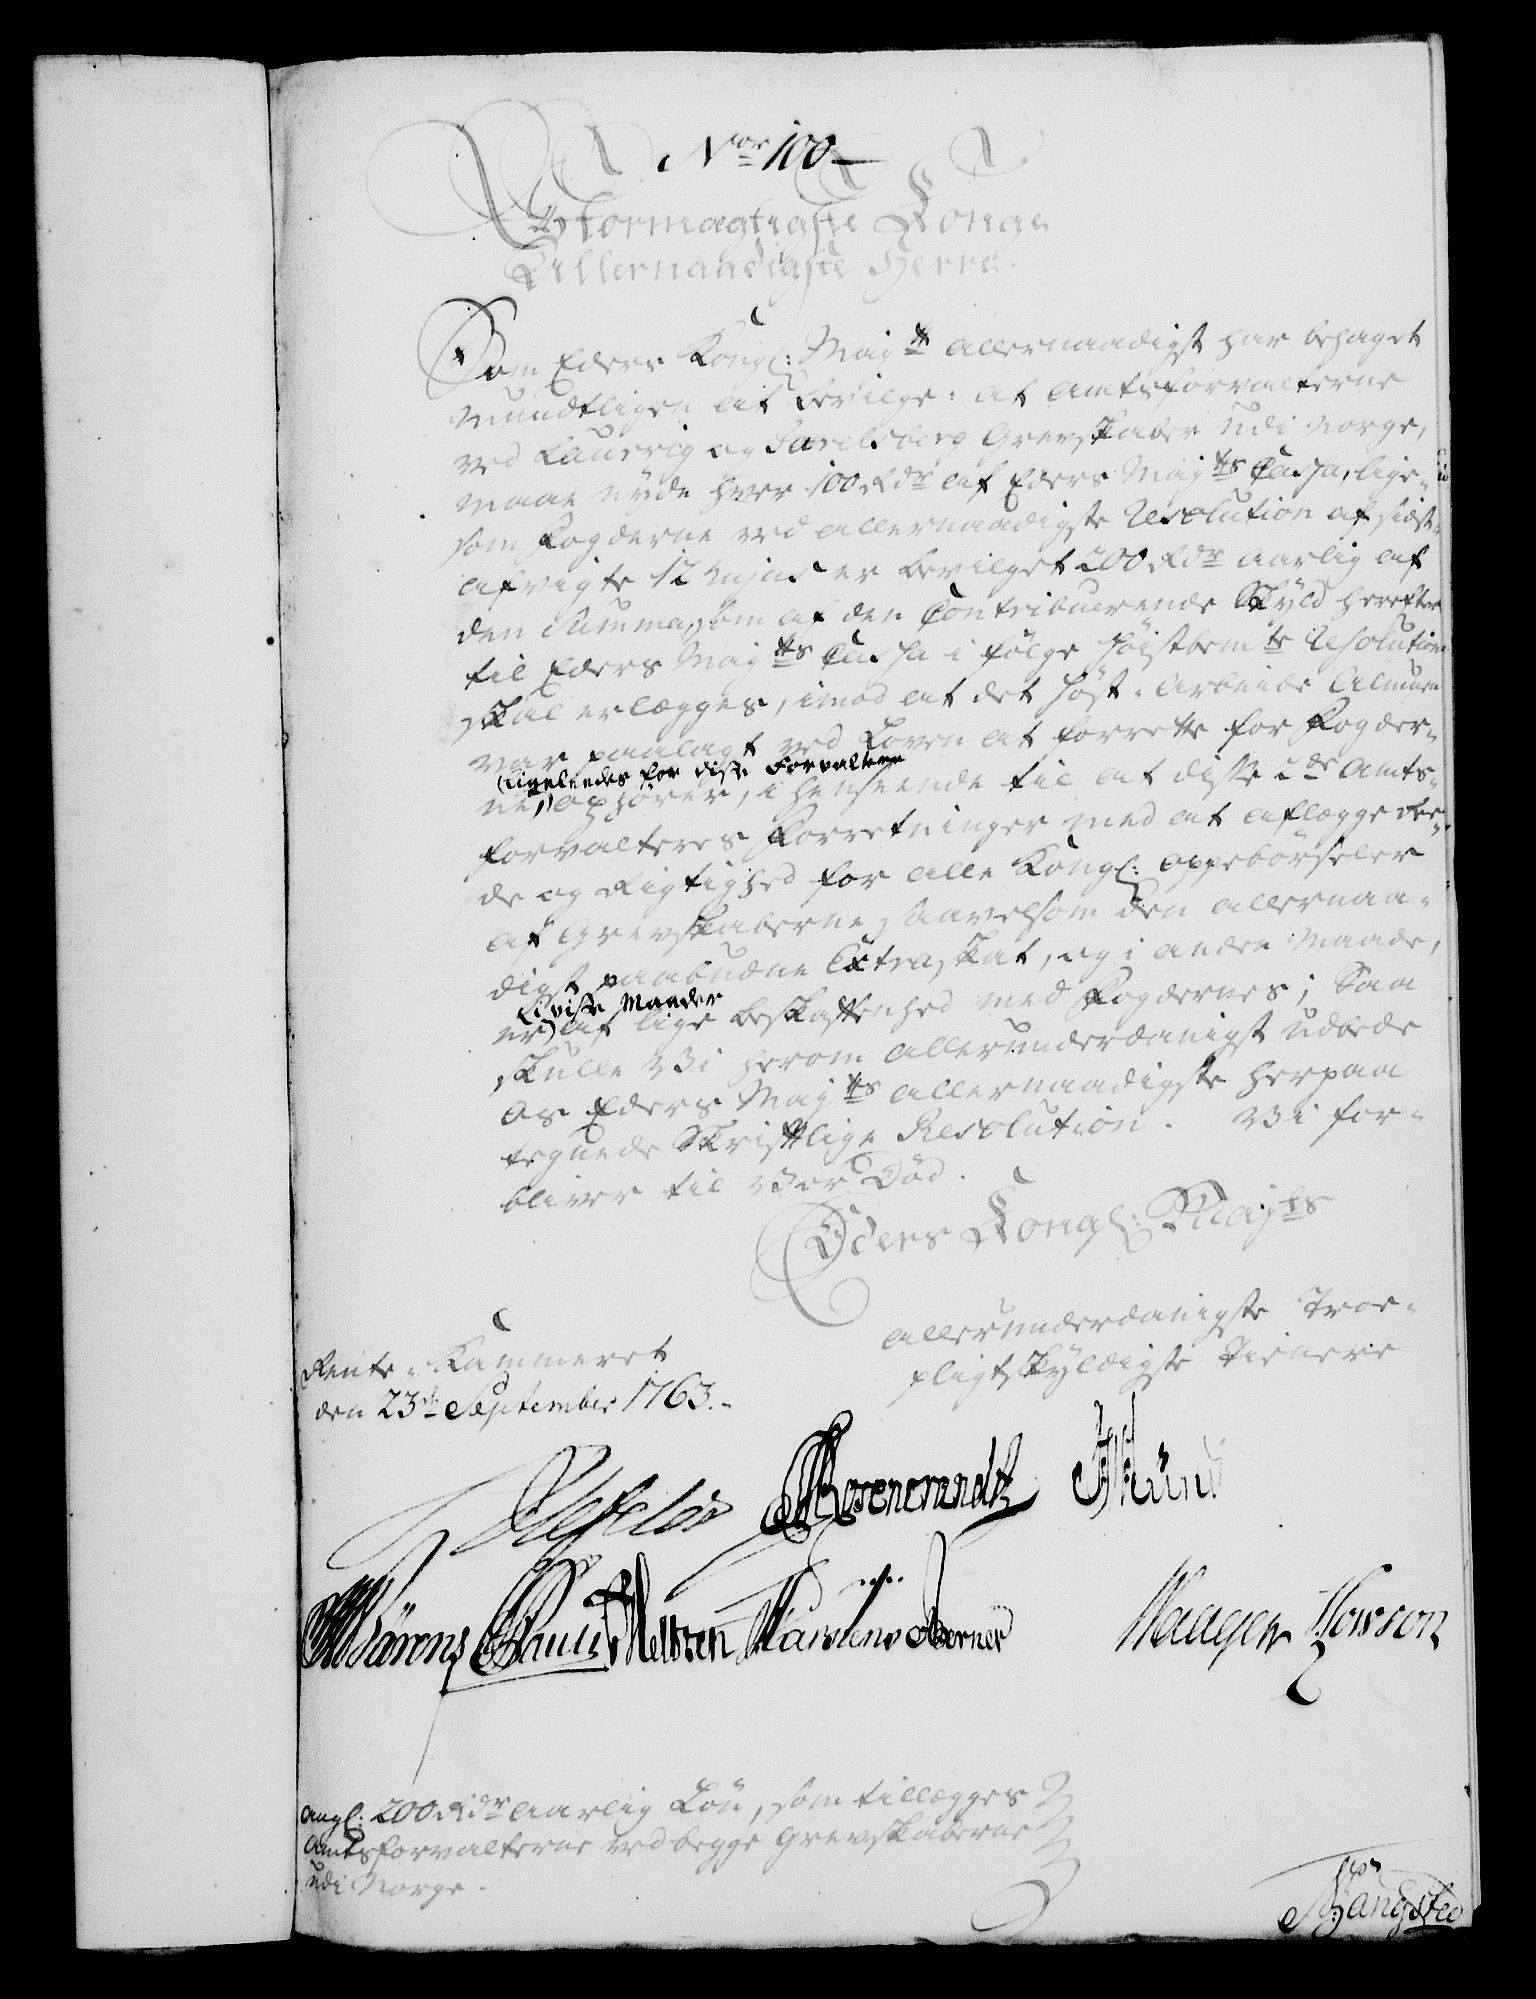 Nor 100
Stormægtigste Konge
Allernaadigste Herre.
Som Eders Kongl: Majtt allernaadigst har behaget
mundtligen at bevilge: at Amtsforvalterne
ved Laurvig og Jarlsberg Grevskaber udi Norge,
maae nyde hver 100 Rdr af Eders Majtts Cassa, lige-
som Fogderne ved allernaadigste Resolution af sidst-
afvigte 12 hujus er bevilget 200 Rdr aarlig af
den Summa, som af den Contribuerende Skyld herefter
til Eders Majtts Cassa i følge høistbemte Resolution
skal erlægges, imod at det Høst-Arbeide Almuen
var paalagt ved Loven at forrette for Fogder-
(ligeledes for disse Forvaltere
ne,) ophører, i henseende til at disse 2de Amts-
forvalteres Forretninger med at aflægge Ree-
de og Rigtighed for alle Kongl: Oppebørseler
af Grevskaberne saavelsom den allernaa-
digst paabudne Extraskat, og i anden Maade,
(i visse Maader
er) af lige beskaffenhed med Fogdernes; Saa
skulle Vi herom allerunderdanigst udbede
os Eders Majtts allernaadigste herpaa
tegnede Skriftlige Resolution. Vi for-
bliver til Vor Død.
Eders Kongl: Majts
allerunderdanigste Troe-
pligtskyldigste Tienere
Rente-Kammeret
den 23de September 1763.
Rosencrandtz
Meltzen Berner
Howson
angl: 200 Rdr aarlig Løn, som tillegges
Amtsforvalterne ved begge Grevskaberne
udi Norge.
Bangsted